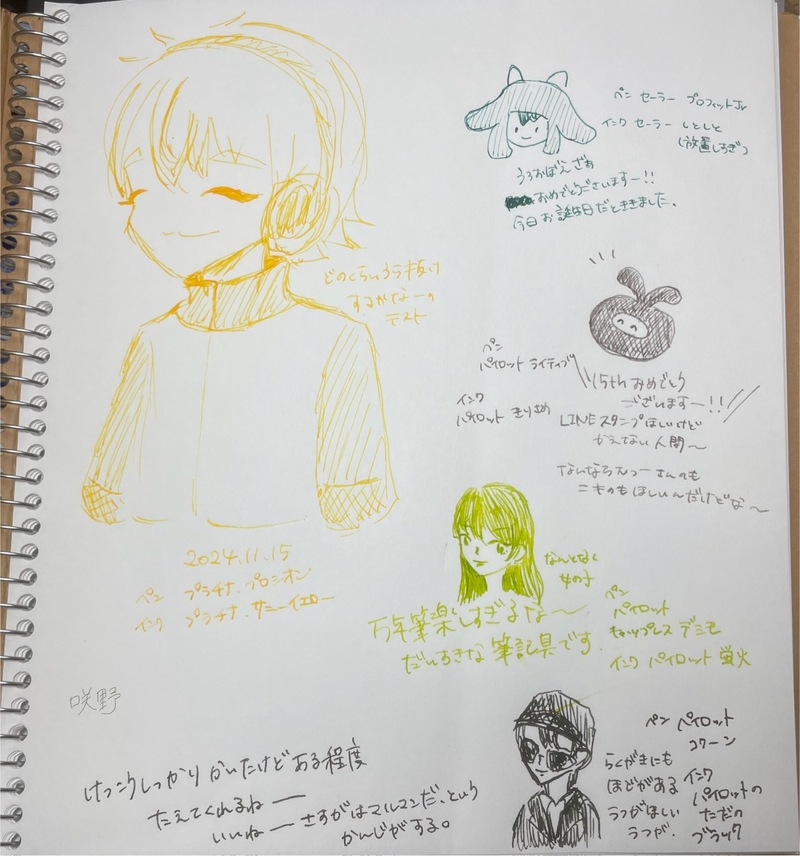 ペン セーラー プロフィットJr
インク セーラー しとしと
(放置しすぎ)
うろおぼえざぁ
おめでとうございますー!!
今日お誕生日だとききました。
どのくらいうら抜け
するかなーの
テスト
ペン
パイロット ライティブ
インク
パイロット きりさめ
15thおめでとう
ございますー!!
LINEスタンプほしいけど
かえてない人間〜
さんのも
ほしいんだけどな〜
2024.11.15
ペン プラチナ.プロシオン
インク プラチナ.サニーイエロー
なんとなく
女の子
万年筆楽しすぎるな〜
だいすきな筆記具です.
ペン
パイロット
キャップレス デシモ
インク パイロット 蛍火
咲野
けっこうしっかりかいたけどある程度
たえてくれるねー
いいねー さすがはマルマンだ、という
かんじがする。
ペン パイロット
コクーン
らくがきにも
ほどがある
うつがほしい
うつが.
インク
パイロットの
ただの
ブラック